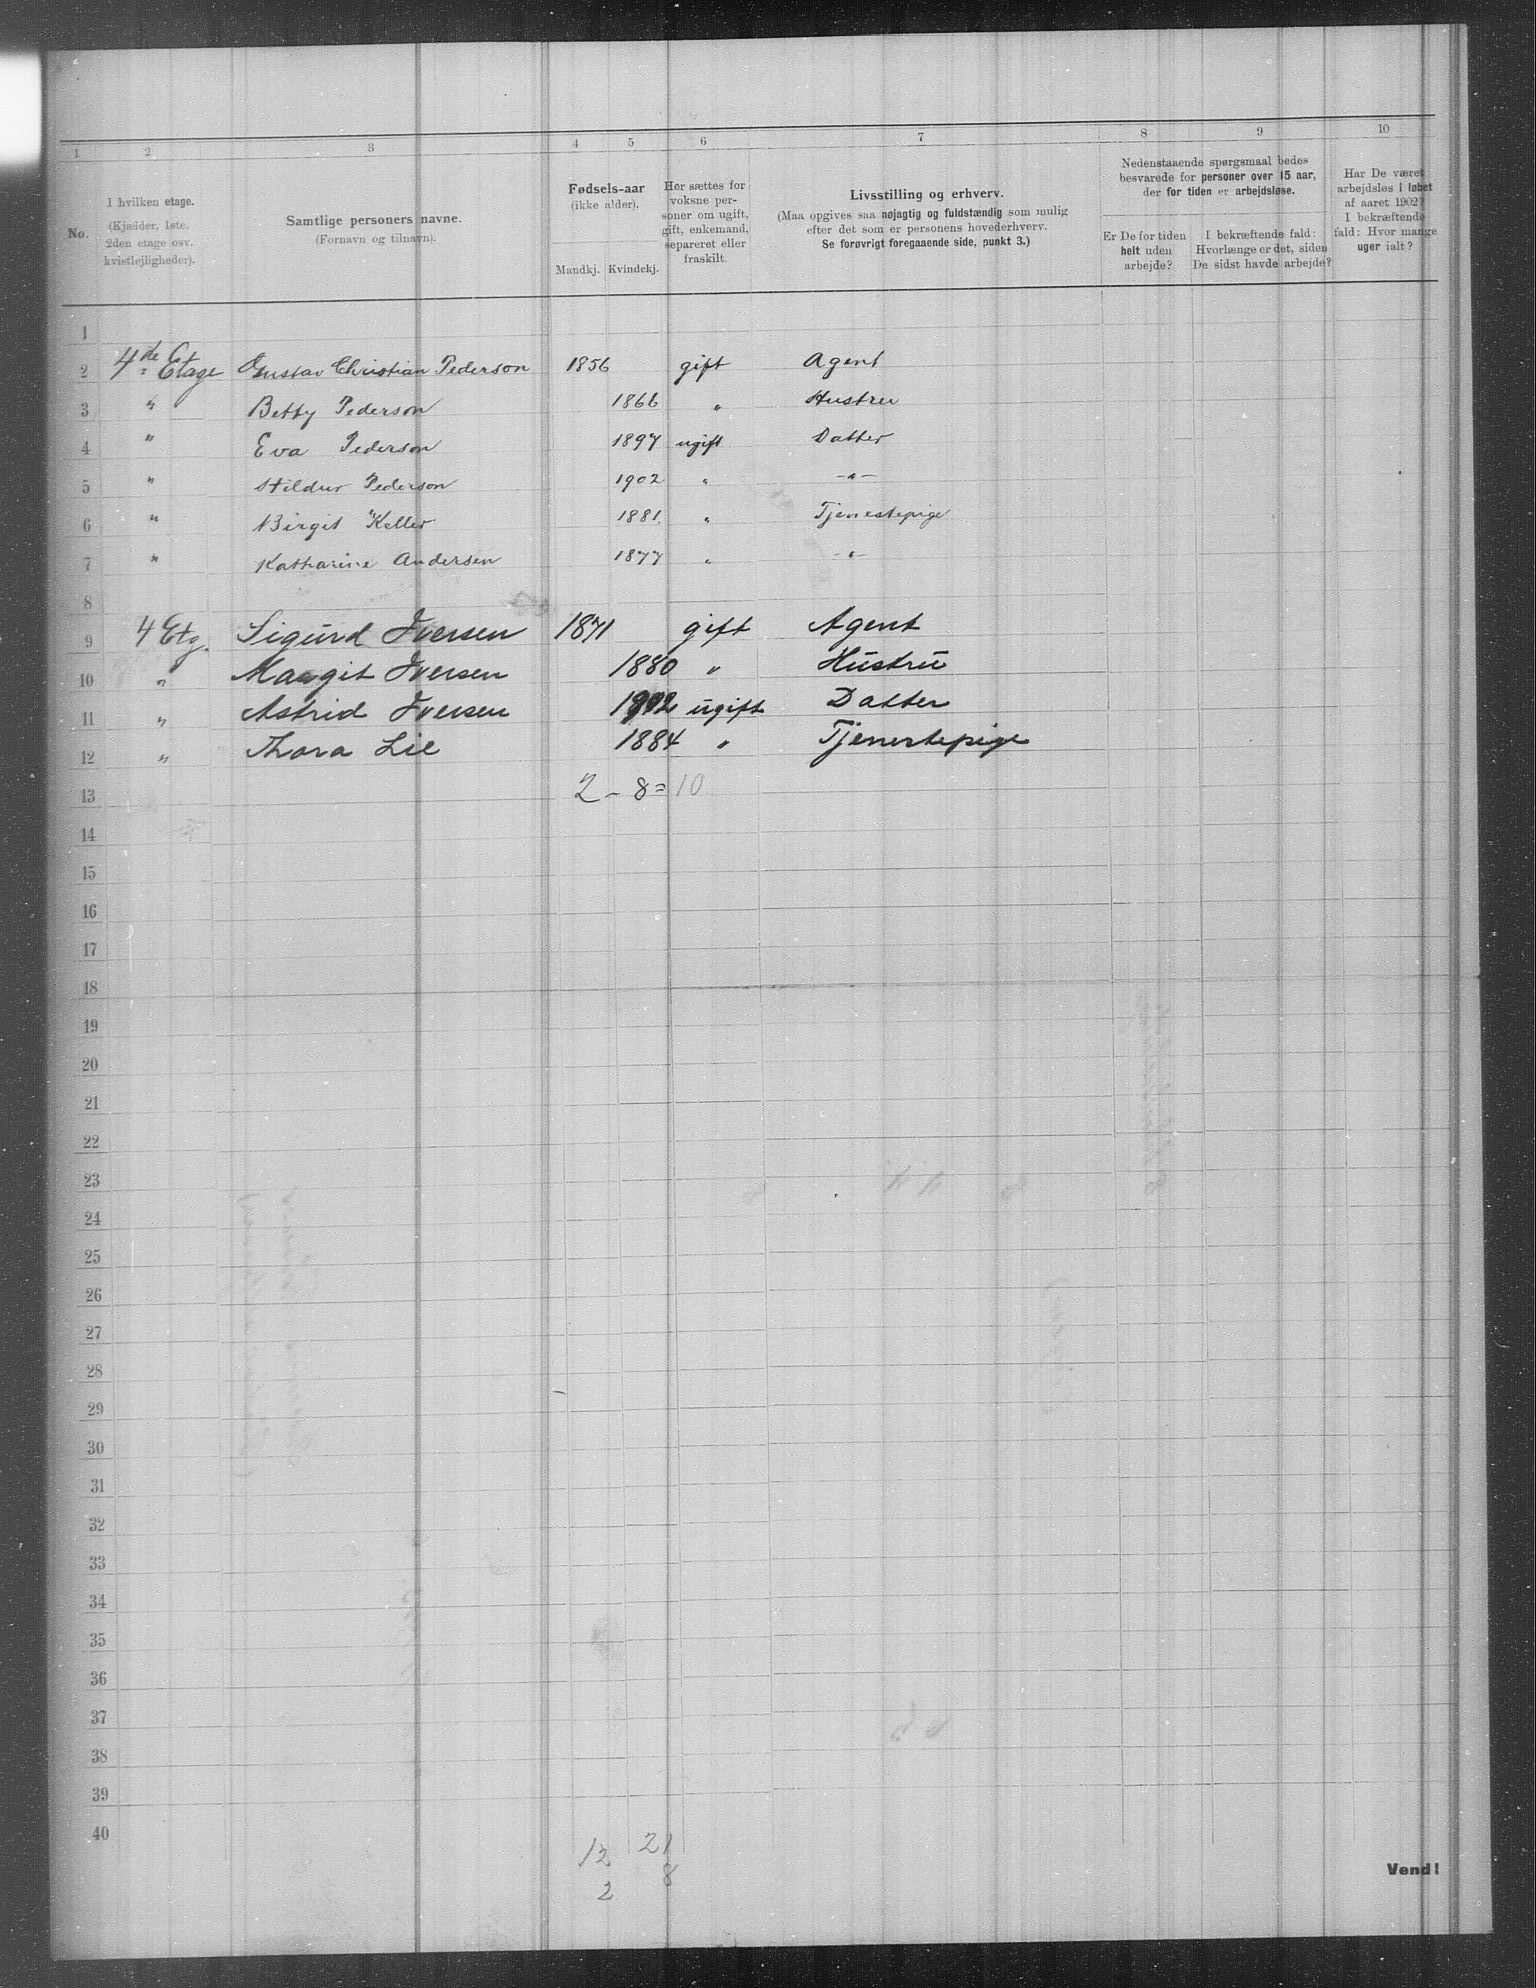 1 2 3 4 5 6 7 8 9 10
No.
I hvilken etage.
(Kjælder, 1ste, 2den etage osv. kvistlejligheder).
Samtlige personers navne.
(Fornavn og tilnavn).
Fødsels-aar
(ikke alder).
Mandkj. Kvindekj.
Her sættes for voksne personer om ugift, gift, enkemand, separeret eller fraskilt.
Livsstilling og erhverv.
(Maa opgives saa nøjagtig og fuldstændig som mulig
efter det som er personens hovederhverv.
Se forøvrigt foregaaende side, punkt 3.)
Nedenstaaende spørgsmaal bedes
besvarede for personer over 15 aar,
der for tiden er arbejdsløse.
Er De for tiden
helt uden
arbejde?
I bekræftende fald:
Hvorlænge er det, siden
De sidst havde arbejde?
Har De været
arbejdsløs i løbet
af aaret 1902?
I bekræftende
fald: Hvor mange
uger ialt?
1
2 4de Etage Gustav Christian Pederson 1856 gift Agent
3 " Betty Pederson 1866 " Hustru
4 " Eva Pederson 1897 ugift Datter
5 " Hildur Pederson 1902 " -"-
6 " Birgit Keller 1881. " Tjenestepige
7 " Katharine Andersen 1877 " -"-
8
9 4 Etg. Sigurd Iversen 1871 gift Agent
10 " Margit Iversen 1880 " Hustru
11 " Astrid Iversen 1902 ugift Datter
12 " Thora Lie 1884 " Tjenestepige
13 2 - 8 = 10
14
15
16
17
18
19
20
21
22
23
24
25
26
27
28
29
30
31
32
33
34
35
36
37
38
39
40
12 21
2 8
Vend!